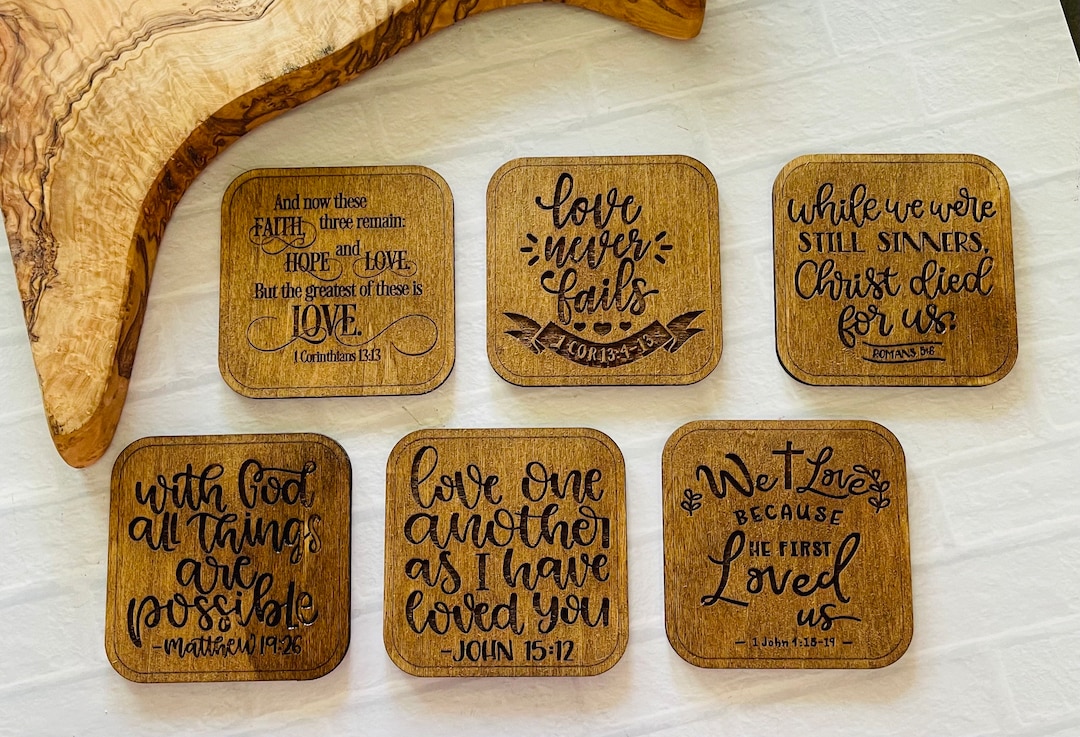 And now these
FAITH, three remain:
HOPE and LOVE.
But the greatest of these is
LOVE.
1 Corinthians 13:13
love
never
fails
1 COR 13:4-13
while we were
STILL SINNERS,
Christ died
for us.
ROMANS 5:8
with God
all things
are
possible
-matthew 19:26
love one
another
as I have
loved you
-JOHN 15:12
We Love
BECAUSE
HE FIRST
Loved
us
- 1 John 4:18-19 -